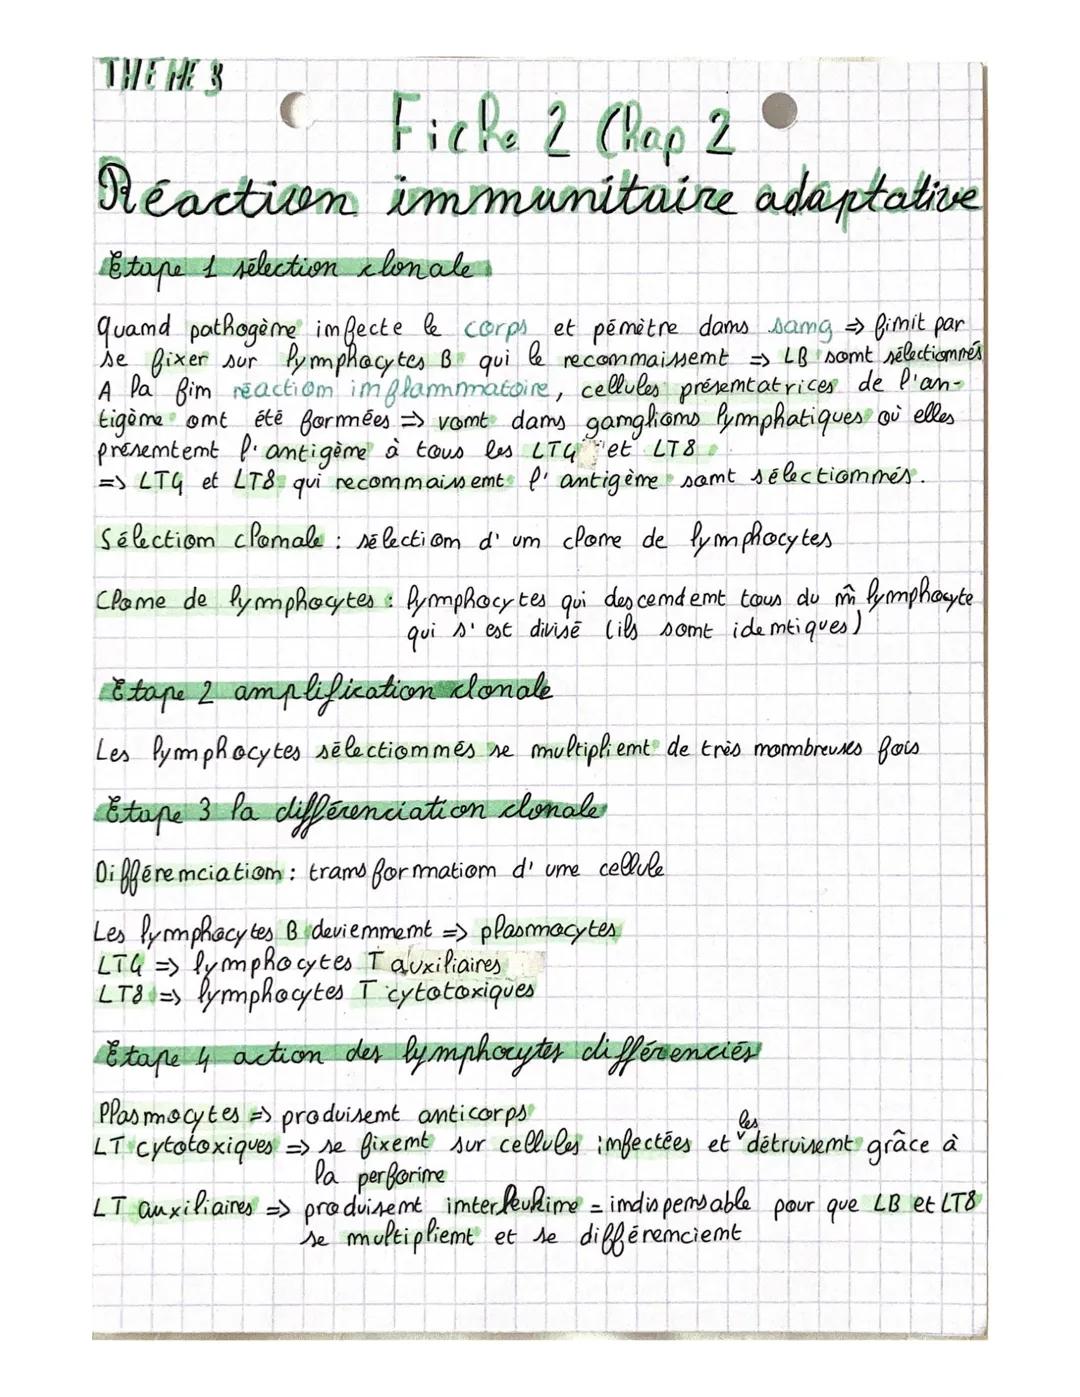 THEME 3
Fiche 2 Chap 2
Réaction immunitaire adaptative
Etape 1 sélection clonale
Quand pathogène infecte le corps et pénètre dans sang => finit par
se fixer sur lymphocytes B qui le reconnaissent => LB sont sélectionnés
A la fin réaction inflammatoire, cellules présentatrices de l'an-
tigène ont été formées => vont dans ganglions lymphatiques où elles
présentent l'antigène à tous les LT4 et LT8
=> LT4 et LT8 qui reconnaissent l'antigène sont sélectionnés.
Sélection clonale : sélection d'un clone de lymphocytes
Clone de lymphocytes : lymphocytes qui descendent tous du m̂ lymphocyte
qui s'est divisé (ils sont identiques)
Etape 2 amplification clonale
Les lymphocytes sélectionnés se multiplient de très nombreuses fois
Etape 3 la différenciation clonale
Différenciation : transformation d'une cellule
Les lymphocytes B deviennent => plasmocytes
LT4 => lymphocytes T auxiliaires
LT8 => lymphocytes T cytotoxiques
Etape 4 action des lymphocytes différenciés
Plasmocytes => produisent anticorps
LT cytotoxiques => se fixent sur cellules infectées et les détruisent grâce à
la perforine
LT auxiliaires => produisent interleukine = indispensable pour que LB et LT8
se multiplient et se différencient